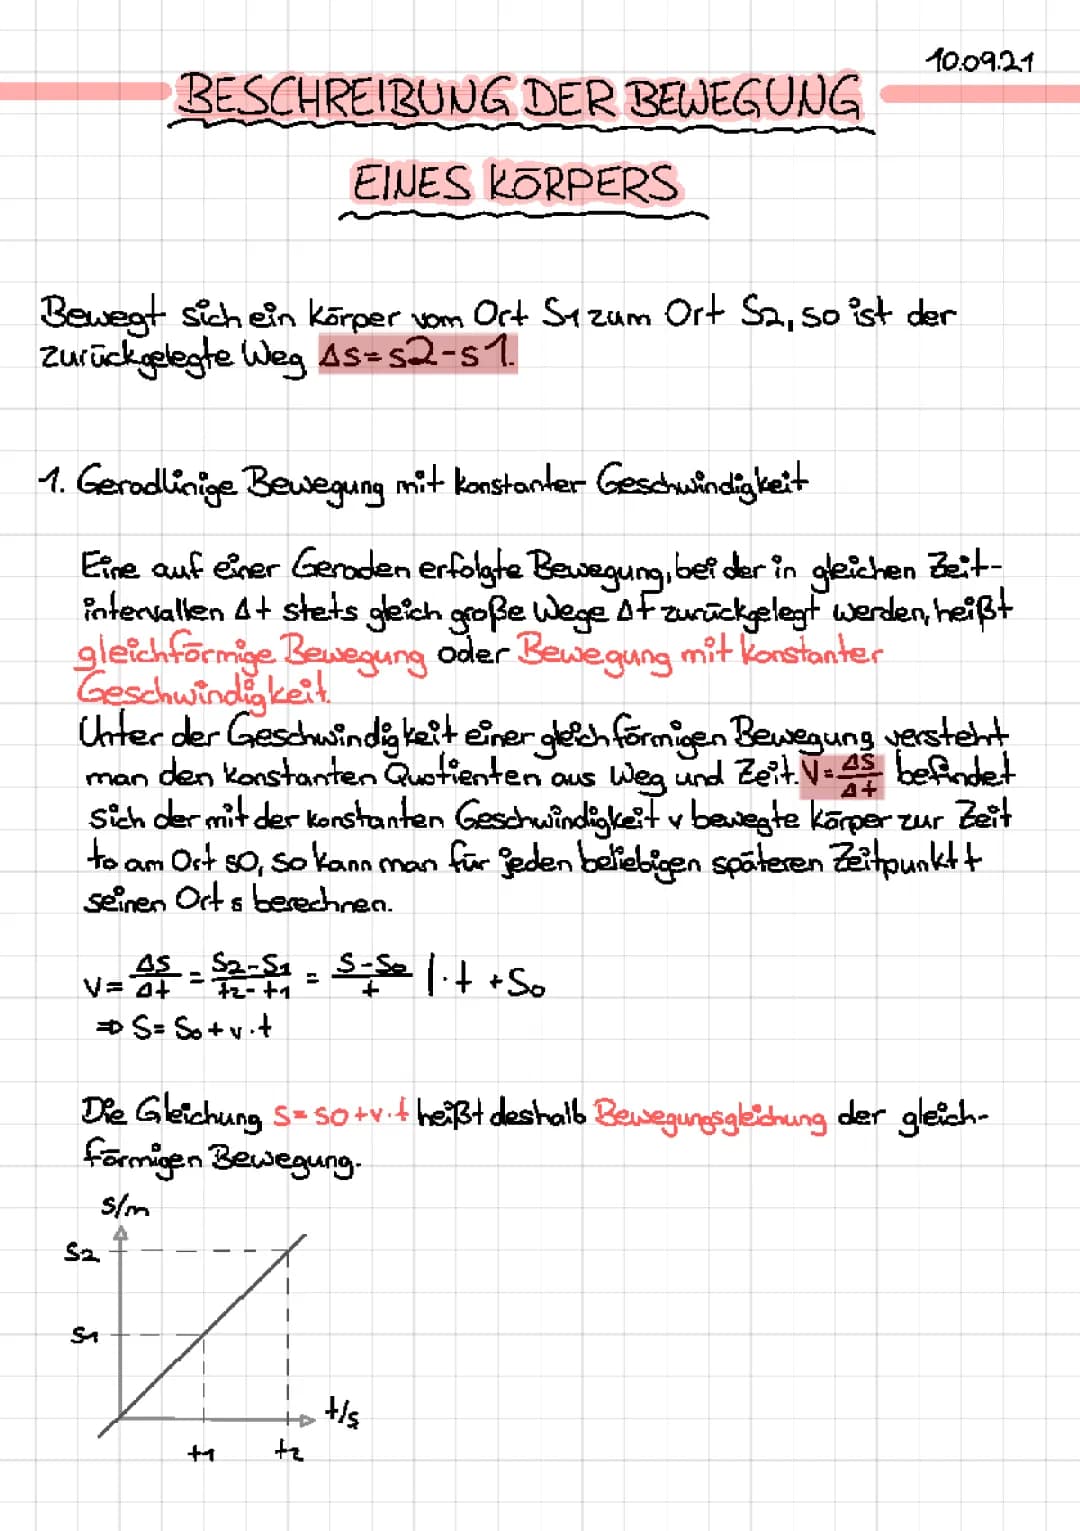 10.09.21
BESCHREIBUNG DER BEWEGUNG
EINES KÖRPERS
Bewegt sich ein Körper vom Ort S1 zum Ort S2, so ist der
zurückgelegte Weg Δs=s2-s1.
1. Geradlinige Bewegung mit konstanter Geschwindigkeit
Eine auf einer Geraden erfolgte Bewegung, bei der in gleichen Zeit-
intervallen Δt stets gleich große Wege Δt zurückgelegt werden, heißt
gleichförmige Bewegung oder Bewegung mit konstanter
Geschwindigkeit.
Unter der Geschwindigkeit einer gleichförmigen Bewegung versteht
man den konstanten Quotienten aus Weg und Zeit. V=ΔS/Δt befindet
sich der mit der konstanten Geschwindigkeit v bewegte Körper zur Zeit
to am Ort so, so kann man für jeden beliebigen späteren Zeitpunkt t
seinen Ort s berechnen.
V= ΔS/Δt = S2-S1/t2-t1 = S-So/t |·t +So
⇒ S= So+v·t
Die Gleichung S=so+v·t heißt deshalb Bewegungsgleichung der gleich-
förmigen Bewegung.
S/m
S2
S1
t/s
t1 t2